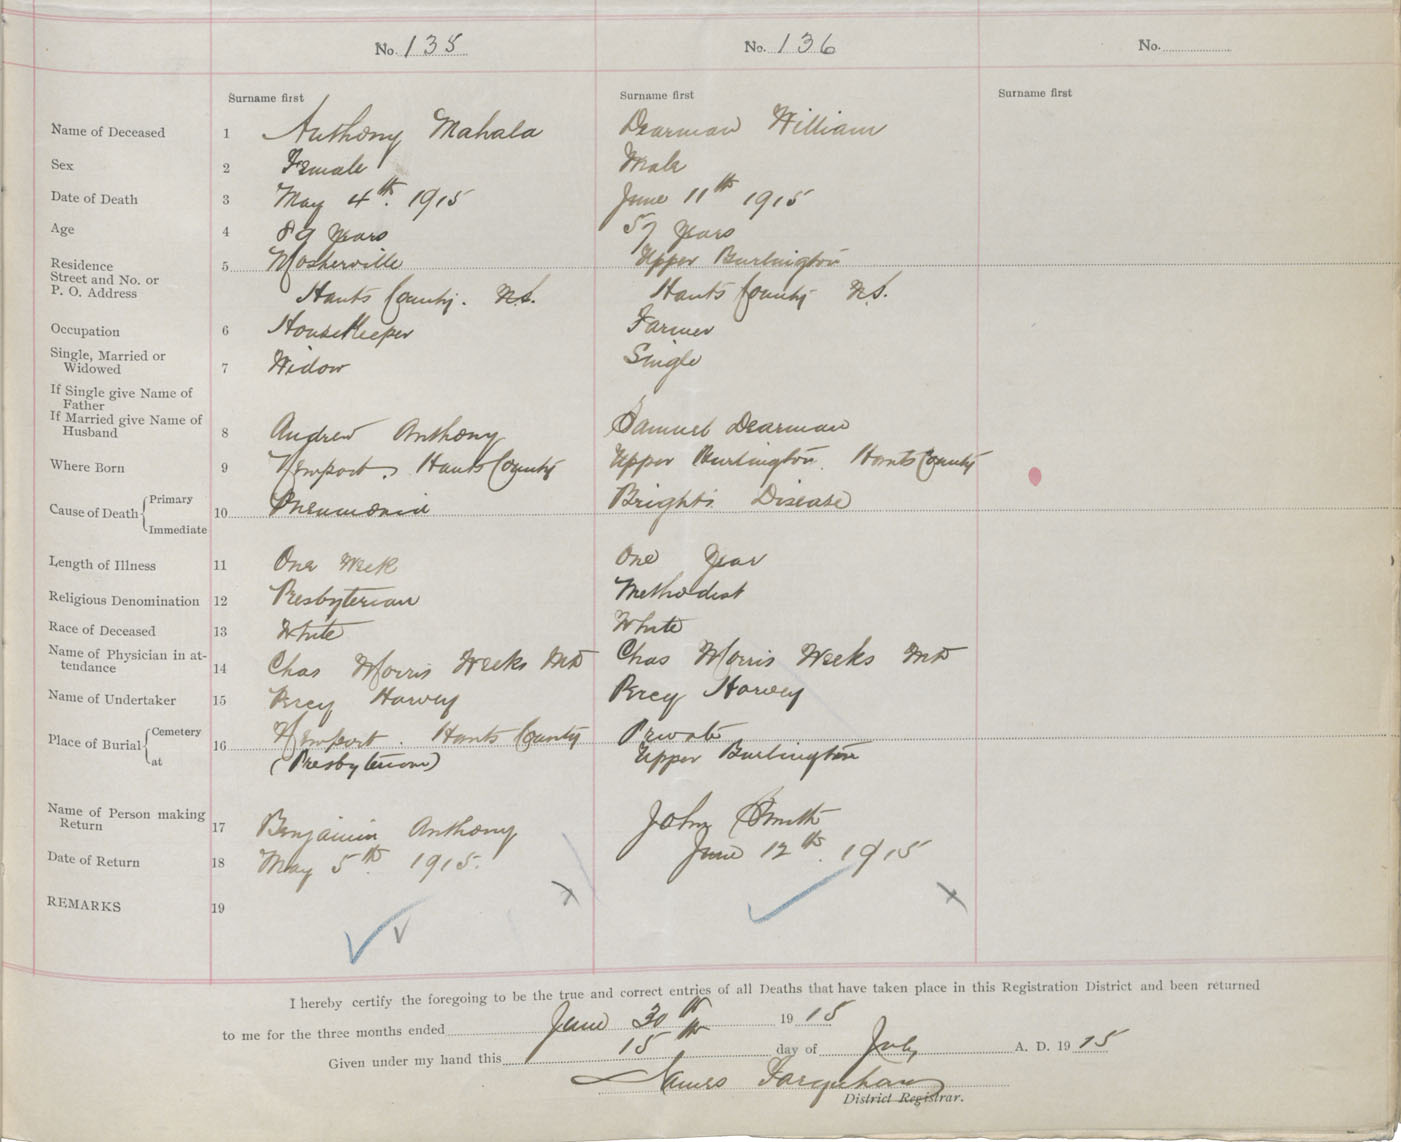 No. 135 No. 136 No.
Surname first Surname first Surname first
Name of Deceased 1 Anthony Mahala Dearman William
Sex 2 Female Male
Date of Death 3 May 4th. 1915 June 11th 1915
Age 4 89 Years 57 Years
Residence 5 Mosherville Upper Burlington
Street and No. or
P. O. Address Hants County. N.S. Hants County N.S.
Occupation 6 HouseKeeper Farmer
Single, Married or
Widowed 7 Widow Single
If Single give Name of
Father
If Married give Name of
Husband 8 Andrew Anthony Samuel Dearman
Where Born 9 Newport, Hants County Upper Burlington. Hants County
Cause of Death Primary 10 Pneumonia Brights Disease
Immediate
Length of Illness 11 One Week One Year
Religious Denomination 12 Presbyterian Methodist
Race of Deceased 13 White White
Name of Physician in at-
tendance 14 Chas Morris Weeks MD Chas Morris Weeks MD
Name of Undertaker 15 Percy Harvey Percy Harvey
Place of Burial Cemetery 16 Newport. Hants County Private
at (Presbyterian) Upper Burlington
Name of Person making
Return 17 Benjamin Anthony John Smith
Date of Return 18 May 5th. 1915. June 12th. 1915
REMARKS 19
I hereby certify the foregoing to be the true and correct entries of all Deaths that have taken place in this Registration District and been returned
to me for the three months ended June 30th 1915
Given under my hand this 15th day of July A. D. 1915
James Farquhar
District Registrar.